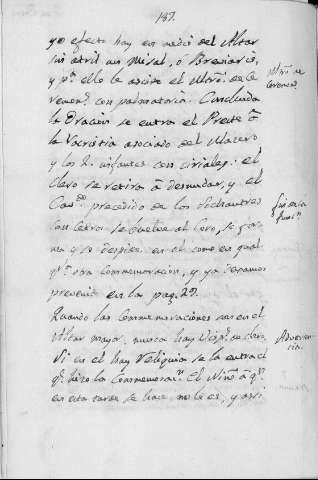 187.
yo efecto hay en medio del Altar
un atril un Misal, ó Breviario,
y pª ello le asiste el Mtrō. de Ce
remonˢ. con palmatoria. Concluida
la Oracion se entra el Preste â
la Sacristia asociado del Macero
y los 2. infantes con ciriales: el
Clero se retira â desnudar, y el
precedido de los Sochantres
con Cetros se buelve al Coro, se
y se despide en el como en qual
qʳª. otra Commemoracion, y ya dexamos
prevenido en la pag. 29.
Quando las Commemoraciones son en el
Altar mayor, nunca hay
Si en el hay Reliquia se la entra el
qᵉ. hizo la Commemoraⁿ. El Niño â qᵉ.
en esta tarde se hace no la es, y assi
Mtrō. de
Ceremonˢ.
Adverten
cia.